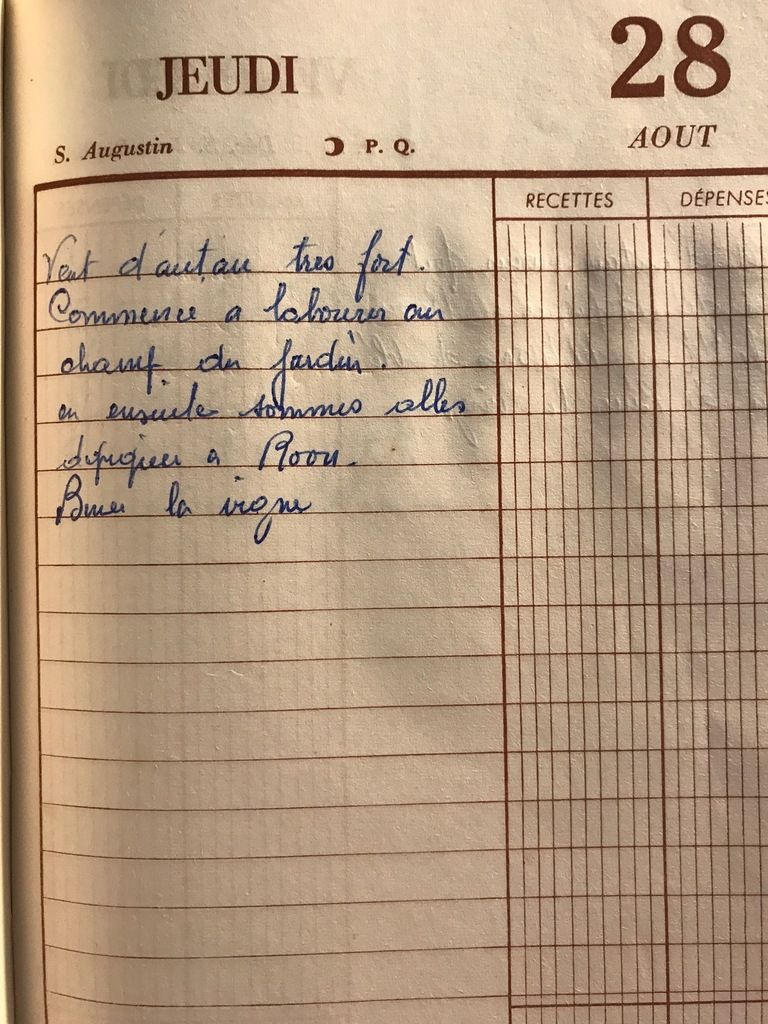 JEUDI
28
S. Augustin
P. Q.
AOUT
RECETTES
DÉPENSES
Vent d'autan tres fort.
Commence a labourer au
champ du jardin.
en ensuite sommes allés
a
Biner la vigne